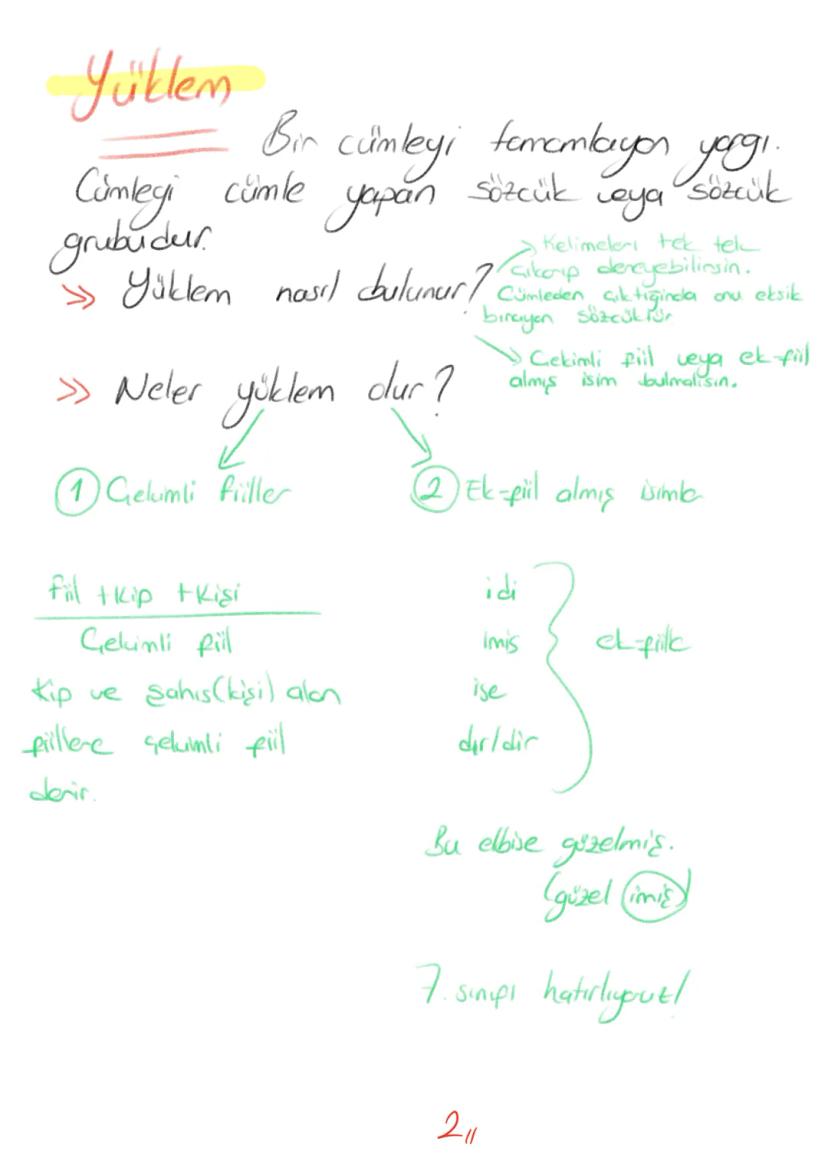 Yüklem
Bir cümleyi tamamlayan yargı.
Cümleyi cümle yapan sözcük veya sözcük
grubudur.
» Yüklem nasıl bulunur?
→ Kelimeleri tek tek
çıkarıp deneyebilirsin.
Cümleden çıktığında onu eksik
bırayan sözcüktür
→ Çekimli fiil veya ek-fiil
almış isim bulmalısın.
» Neler yüklem olur?
1 Çekimli fiiller
2 Ek-fiil almış isimle
fiil +Kip +Kişi
Çekimli fiil
Kip ve şahıs(kişi) alan
fiillere çekimli fiil
denir.
idi
imiş
ise
dır/dir
ek-fiille
Bu elbise güzelmiş.
(güzel imiş)
7. sınıfı hatırlıyoruz!
2